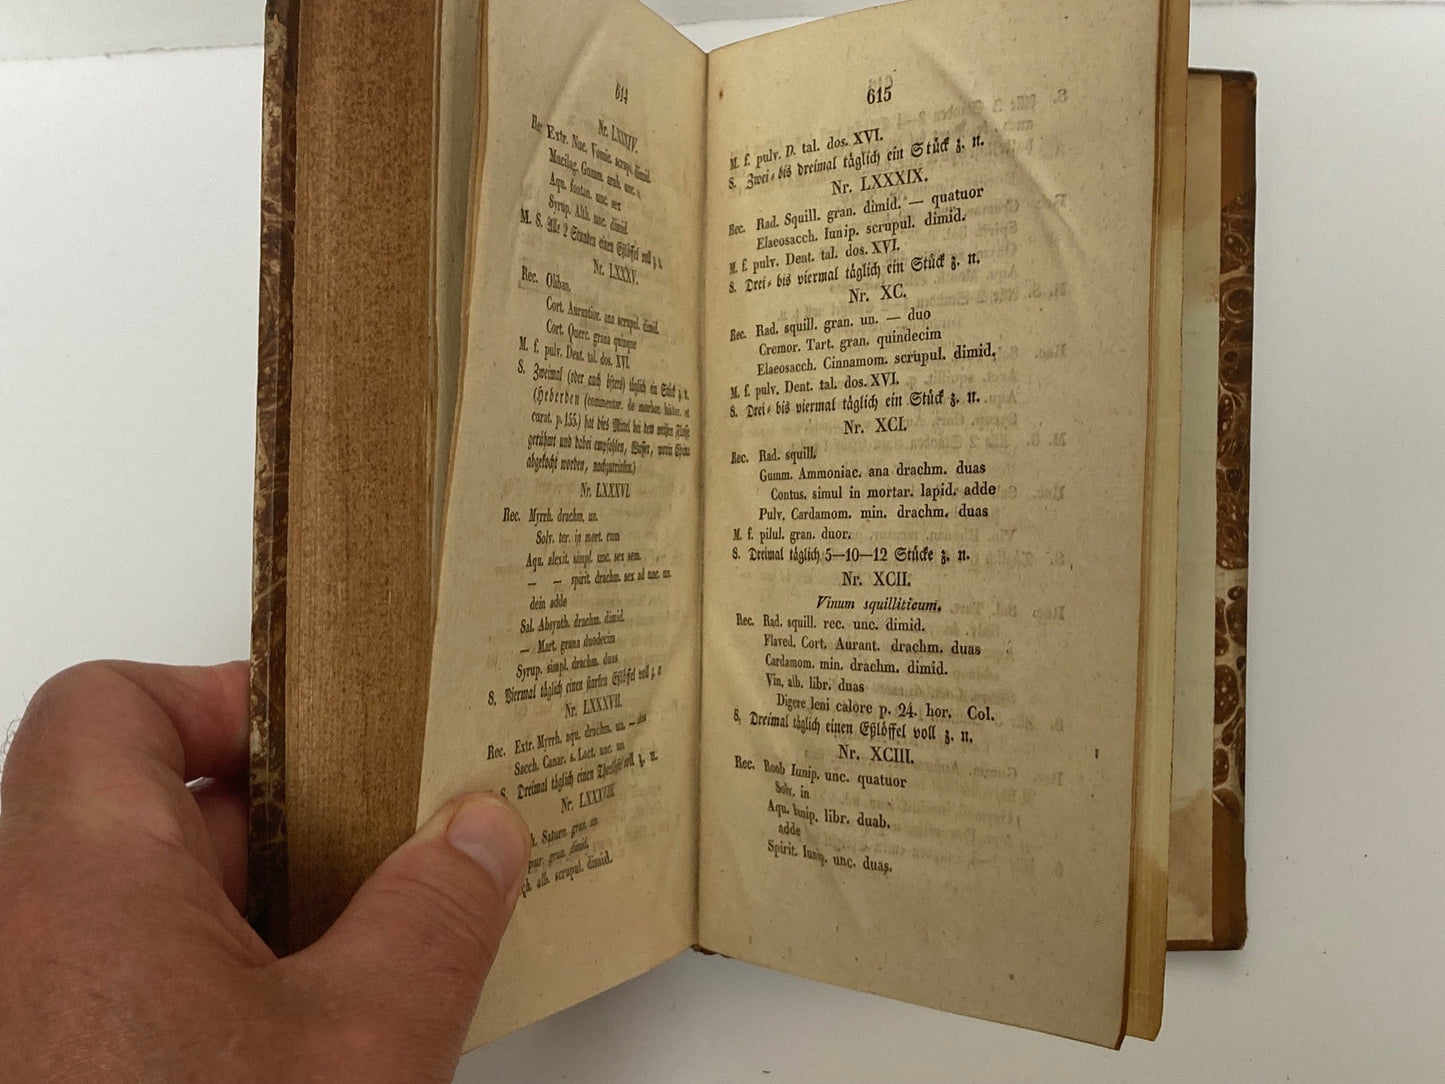 614
Nr. LXXXIV.
Rec. Extr. Nuc. Vomic. scrup. dimid.
Mucilag. Gumm. arab. unc. s.
Aqu. fontan. unc. sex
Syrup. Alth. unc. dimid.
M. S. Alle 2 Stunden einen Eßlöffel voll z. n.
Nr. LXXXV.
Rec. Oliban.
Cort. Aurantior. ana scrupul. dimid.
Cort. Querc. grana quinque
M. f. pulv. Dent. tal. dos. XVI.
S. Zweimal (oder auch öfters) täglich ein Stück z. n.
(Heberden (commentar. de morbor. histor. et
curat. p. 155.) hat dies Mittel bei dem weißen Flusse
gerühmt und dabei empfohlen, Wasser, worin China
abgekocht worden, nachzutrinken.)
Nr. LXXXVI.
Rec. Myrrh. drachm. un.
Solv. ter. in mort. cum
Aqu. alexit. simpl. unc. sex sem.
— — spirit. drachm. sex ad unc. un.
dein adde
Sal. Absynth. drachm. dimid.
— Mart. grana duodecim
Syrup. simpl. drachm. duas
S. Viermal täglich einen starken Eßlöffel voll z. n
Nr. LXXXVII.
Rec. Extr. Myrrh. aqu. drachm. un. — duo
Sacch. Canar. s. Lact. unc. un.
S. Dreimal täglich einen Theelöffel voll z. n.
Nr. LXXXVIII
h. Saturn. gran. un.
pur. gran. dimid.
ch. alb. scrupul. dimid.
615
M. f. pulv. D. tal. dos. XVI.
S. Zwei- bis dreimal täglich ein Stück z. n.
Nr. LXXXIX.
Rec. Rad. Squill. gran. dimid. — quatuor
Elaeosacch. Iunip. scrupul. dimid.
M. f. pulv. Dent. tal. dos. XVI.
S. Drei- bis viermal täglich ein Stück z. n.
Nr. XC.
Rec. Rad. squill. gran. un. — duo
Cremor. Tart. gran. quindecim
Elaeosacch. Cinnamom. scrupul. dimid.
M. f. pulv. Dent. tal. dos. XVI.
S. Drei- bis viermal täglich ein Stück z. n.
Nr. XCI.
Rec. Rad. squill.
Gumm. Ammoniac. ana drachm. duas
Contus. simul in mortar. lapid. adde
Pulv. Cardamom. min. drachm. duas
M. f. pilul. gran. duor.
S. Dreimal täglich 5—10—12 Stücke z. n.
Nr. XCII.
Vinum squilliticum.
Rec. Rad. squill. rec. unc. dimid.
Flaved. Cort. Aurant. drachm. duas
Cardamom. min. drachm. dimid.
Vin. alb. libr. duas
Digere leni calore p. 24. hor. Col.
S. Dreimal täglich einen Eßlöffel voll z. n.
Nr. XCIII.
Rec. Roob Iunip. unc. quatuor
Solv. in
Aqu. Iunip. libr. duab.
adde
Spirit. Iunip. unc. duas.